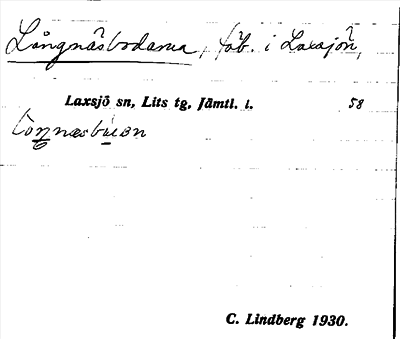 Långnäsbodarna, fäb. i Laxsjön,
Laxsjö sn, Lits tg, Jämtl. l. 58
C. Lindberg 1930.